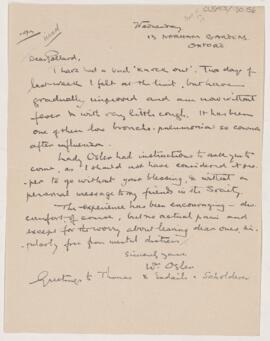 CUS93/30/56
Wednesday
13 NORHAM GARDENS
OXFORD
Dear Pollard,
I have had a bad 'knock out'. Two days of
last week I felt at the limit, but have
gradually improved and am now without
fever & with very little cough. It has been
one of these low broncho-pneumonias so common
after influenza.
Lady Osler had instructions to ask you to
come, as I should not have considered it pro-
per to go without your blessing, & without a
personal message to my friends in the Society.
The experience has been encouraging - dis
comfort of course, but no actual pain and
except for the worry about leaving dear ones, sin
gularly free from mental distress
Sincerely yours
Wm Osler
Greetings to Thomas & Esdaile & Scholderer